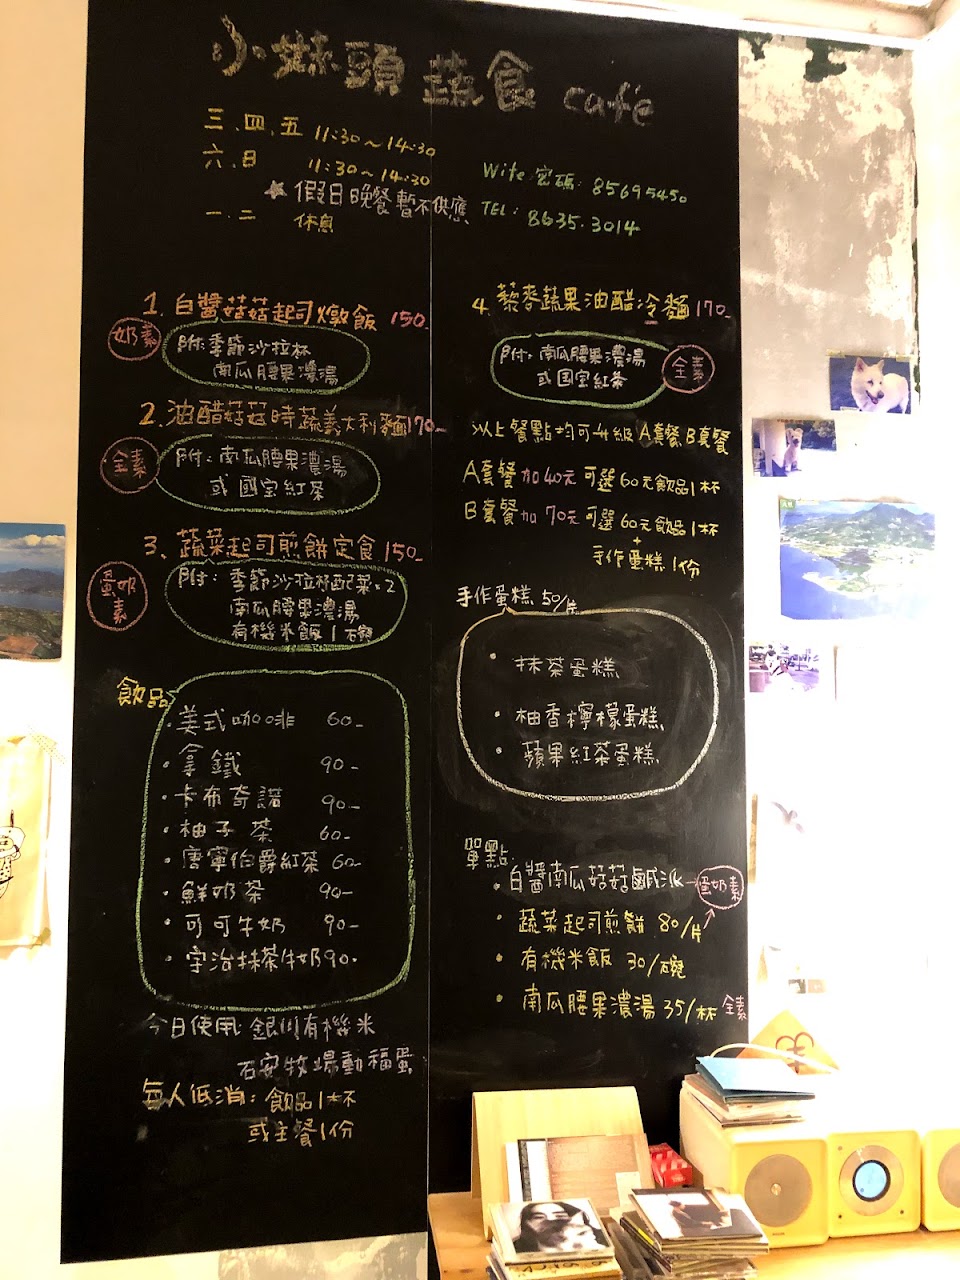 小㷼頭 蔬食 café
三、四、五 11:30～14:30
六、日 11:30～14:30
☆ 假日晚餐暫不供應
一、二 休息
Wife 密碼: 85695450
TEL: 8635.3014
1. 白醬菇菇起司燉飯 150-
奶素
附:季節沙拉杯
南瓜腰果濃湯
2. 油醋菇菇時蔬義大利麵 170-
全素
附:南瓜腰果濃湯
或 國宝紅茶
3. 蔬菜起司煎餅定食 150-
蛋奶素
附: 季節沙拉杯配菜×2
南瓜腰果濃湯
有機米飯 1碗
飲品
·美式咖啡 60-
·拿鐵 90-
·卡布奇諾 90-
·柚子茶 60-
·唐寧伯爵紅茶 60-
·鮮奶茶 90-
·可可牛奶 90-
·宇治抹茶牛奶 90-
今日使用: 銀川有機米
石安牧場動福蛋
每人低消: 飲品1杯
或主餐1份
4. 藜麥蔬果油醋冷麵 170-
附:南瓜腰果濃湯
或國宝紅茶
全素
以上餐點均可升級A套餐、B套餐
A套餐加40元可選60元飲品1杯
B套餐加70元可選60元飲品1杯
+
手作蛋糕1份
手作蛋糕 50/片
·抹茶蛋糕
·柚香檸檬蛋糕
·蘋果紅茶蛋糕
單點:
·白醬南瓜菇菇鹹派 蛋奶素
·蔬菜起司煎餅 80/片
·有機米飯 30/碗
·南瓜腰果濃湯 35/杯 全素